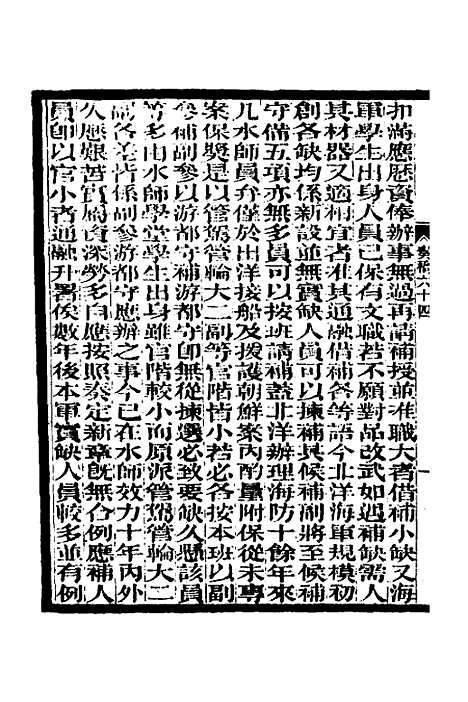 扣滿應歷資俸辦事無過再請補授並准職大者借補小缺又海
軍學生出身人員已保有文職若不願對品改武如遇補缺需人
其材器又適相宜者准其通融借補各等語今北洋海軍規模初
創各缺均係新設並無實缺人員可以揀補其候補副將至候補
守備五項亦無多員可以按班請補蓋北洋辦理海防十餘年來
凡水師員弁僅於出洋接船及援護朝鮮案內酌量附保從未專
案保獎是以管駕管輪大二副等官階皆小若必各按本班以副
參補副參以游都守補游都守卽無從揀選必致要缺久懸該員
等多由水師學堂學生出身雖官階較小而原派管駕管輪大二
副各差皆係副參游都守應辦之事今已在水師效力十年內外
久應艱苦實屬資深勞多自應按照奏定新章旣無合例應補人
員卽以官小者通融升署俟數年後本軍實缺人員較多並有例
六十四